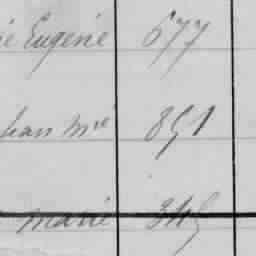 Eugénie 677
Jean Mie 851
Marie 345